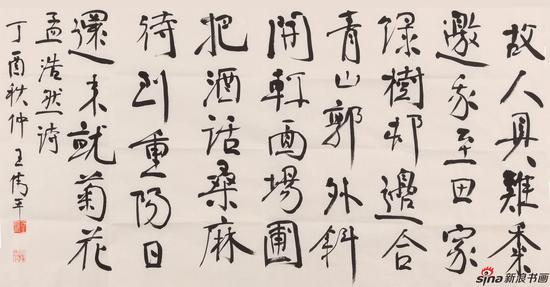 故人具雞黍
邀我至田家
绿樹邨邊合
青山郭外斜
開軒面場圃
把酒話桑麻
待到重陽日
還来就菊花
孟浩然詩
丁酉秋仲 王偉平
sina 新浪书画